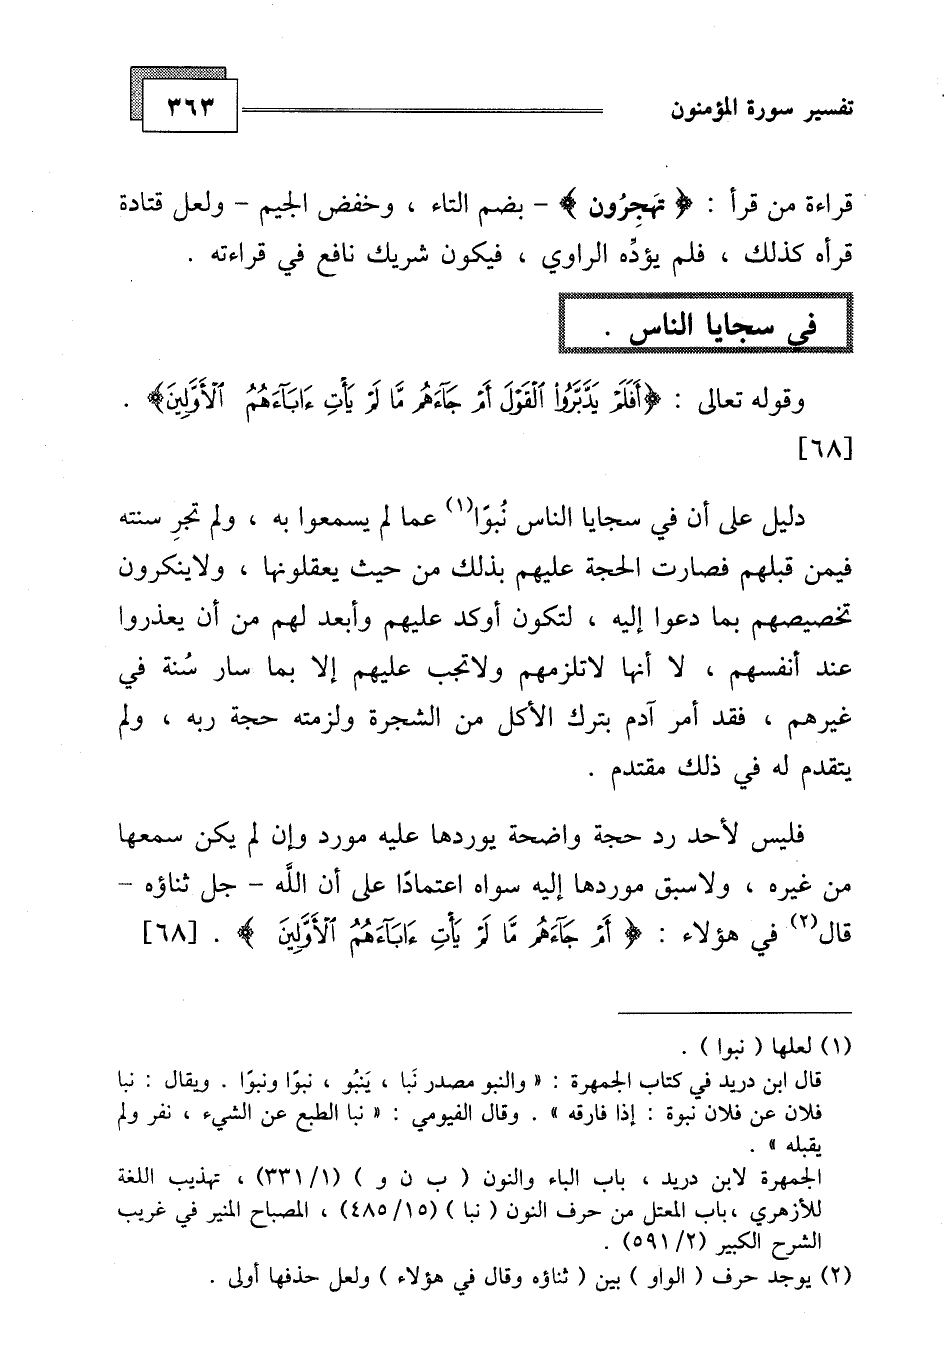 تفسير سورة المؤمنون ٣٦٣
قراءة من قرأ : ﴿ تهجِرُون ﴾ – بضم التاء ، وخفض الجيم – ولعل قتادة
قرأه كذلك ، فلم يؤدِّه الراوي ، فيكون شريك نافع في قراءته .
في سجايا الناس .
وقوله تعالى : ﴿أَفَلَمْ يَدَّبَّرُوا۟ ٱلْقَوْلَ أَمْ جَآءَهُم مَّا لَمْ يَأْتِ ءَابَآءَهُمُ ٱلْأَوَّلِينَ﴾ .
[٦٨]
دليل على أن في سجايا الناس نُبوًا(١) عما لم يسمعوا به ، ولم تجرِ سنته
فيمن قبلهم فصارت الحجة عليهم بذلك من حيث يعقلونها ، ولاينكرون
تخصيصهم بما دعوا إليه ، لتكون أوكد عليهم وأبعد لهم من أن يعذروا
عند أنفسهم ، لا أنها لاتلزمهم ولاتجب عليهم إلا بما سار سُنة في
غيرهم ، فقد أمر آدم بترك الأكل من الشجرة ولزمته حجة ربه ، ولم
يتقدم له في ذلك مقتدم .
فليس لأحد رد حجة واضحة يوردها عليه مورد وإن لم يكن سمعها
من غيره ، ولاسبق موردها إليه سواه اعتمادًا على أن اللَّه – جل ثناؤه –
قال(٢) في هؤلاء : ﴿ أَمْ جَآءَهُم مَّا لَمْ يَأْتِ ءَابَآءَهُمُ ٱلْأَوَّلِينَ ﴾ . [٦٨]
(١) لعلها ( نبوا ) .
قال ابن دريد في كتاب الجمهرة : « والنبو مصدر نَبا ، يَنبُو ، نبوًا ونبوًا . ويقال : نبا
فلان عن فلان نبوة : إذا فارقه » . وقال الفيومي : « نبا الطبع عن الشيء ، نفر ولم
يقبله » .
الجمهرة لابن دريد ، باب الباء والنون ( ب ن و ) (٣٣١/١) ، تهذيب اللغة
للأزهري ،باب المعتل من حرف النون ( نبا ) (٤٨٥/١٥) ، المصباح المنير في غريب
الشرح الكبير (٥٩١/٢) .
(٢) يوجد حرف ( الواو ) بين ( ثناؤه وقال في هؤلاء ) ولعل حذفها أولى .